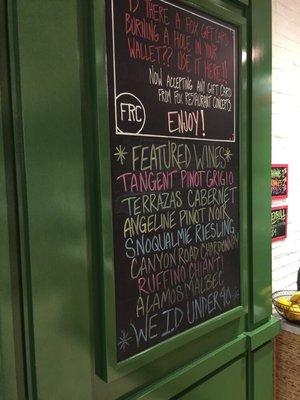 THERE A FOX GIFT CARD
BURNING A HOLE IN YOUR
WALLET?? USE IT HERE!!
NOW ACCEPTING ANY GIFT CARD
FROM FOX RESTAURANT CONCEPTS
FRC
ENJOY!
FEATURED WINES
TANGENT PINOT GRIGIO
TERRAZAS CABERNET
ANGELINE PINOT NOIR
SNOQUALMIE RIESLING
CANYON ROAD CHARDONNAY
RUFFINO CHIANTI
ALAMOS MALBEC
WE I.D UNDER 40